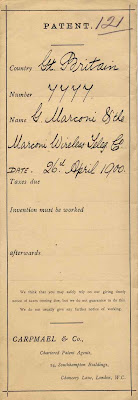 PATENT. 121
Country Gt. Britain
Number 7777.
Name G. Marconi & the
Marconi Wireless Teleg. Co
DATE. 26th April 1900.
Taxes due
Invention must be worked
afterwards
We think that you may safely rely on our giving timely
notice of taxes coming due, but we do not guarantee to do this.
We do not usually give any further notice of working.
CARPMAEL & Co.,
Chartered Patent Agents,
24, Southampton Buildings,
Chancery Lane, London, W.C.